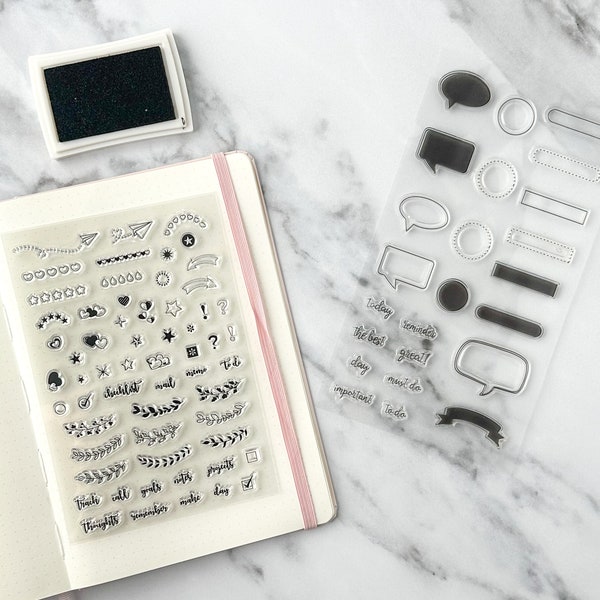 memo to do
checklist mail
projects
goals notes
track call
make day
thoughts remember
today reminder
the best
great!
day must do
important to do